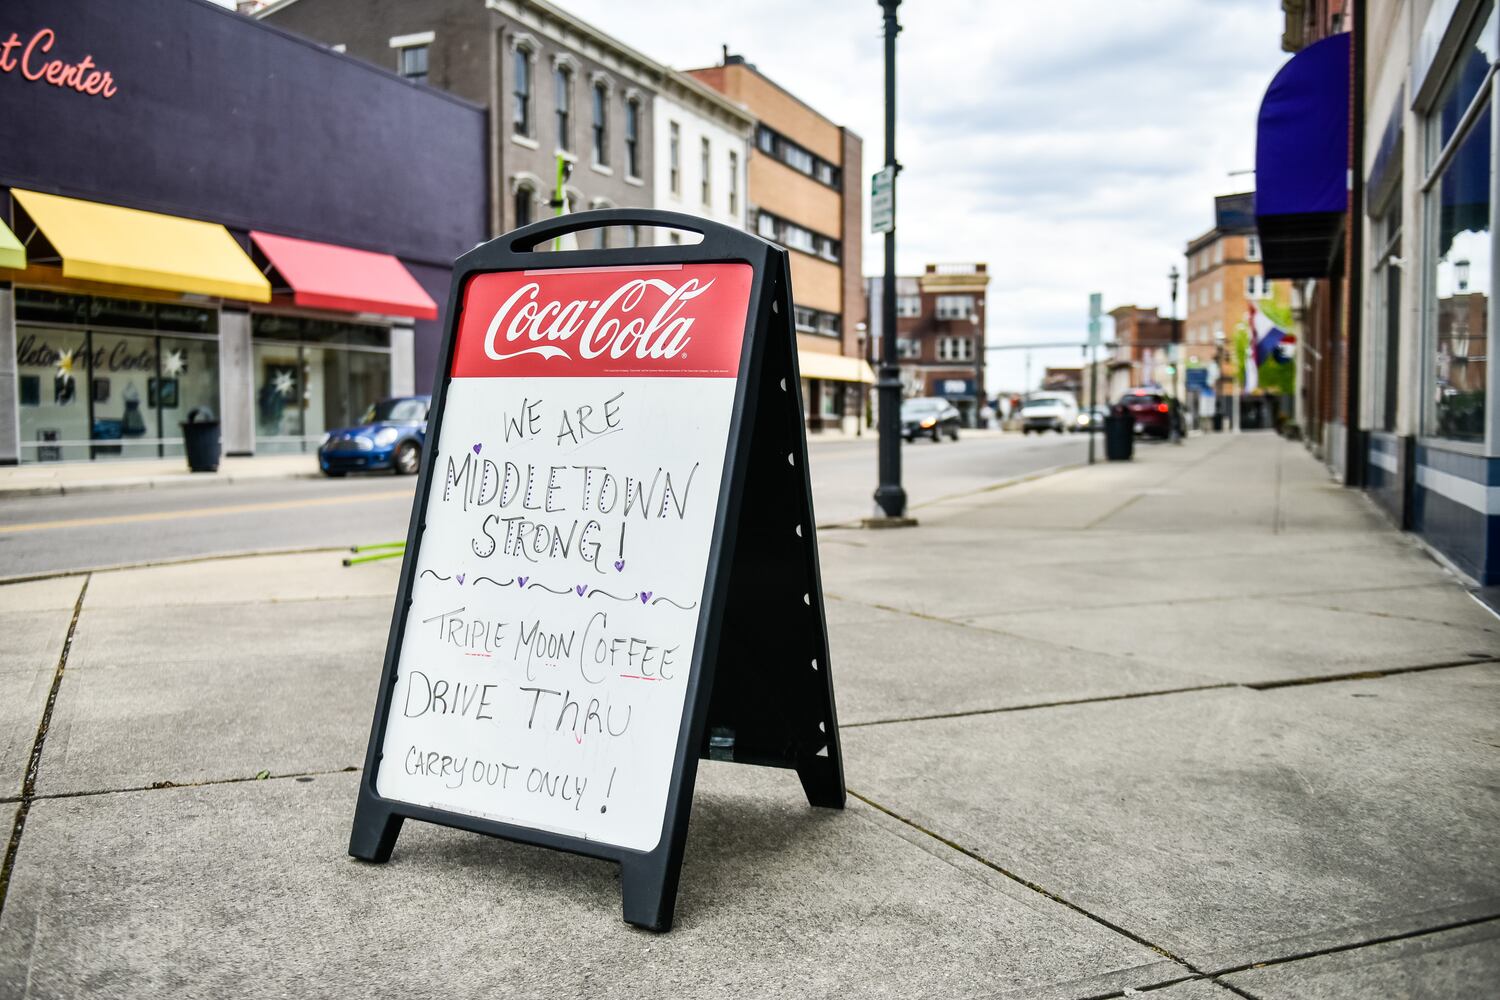 t Center
dleton Art Center
Coca-Cola
WE ARE
MIDDLETOWN
STRONG!
TRIPLE MOON COFFEE
DRIVE THRU
CARRYOUT ONLY!